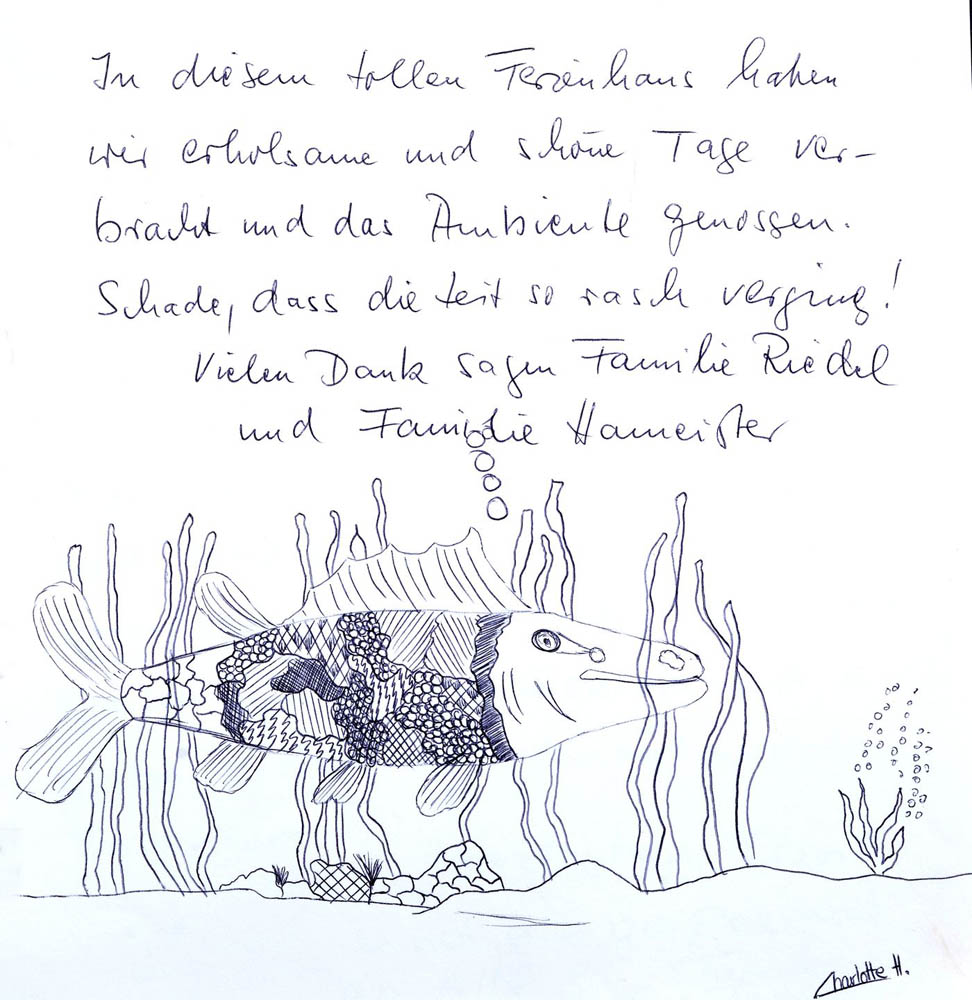 In diesem tollen Ferienhaus haben
wir erholsame und schöne Tage ver-
bracht und das Ambiente genossen.
Schade, dass die Zeit so rasch verging!
Vielen Dank sagen Familie Riedel
und Familie Hameister
Charlotte H.